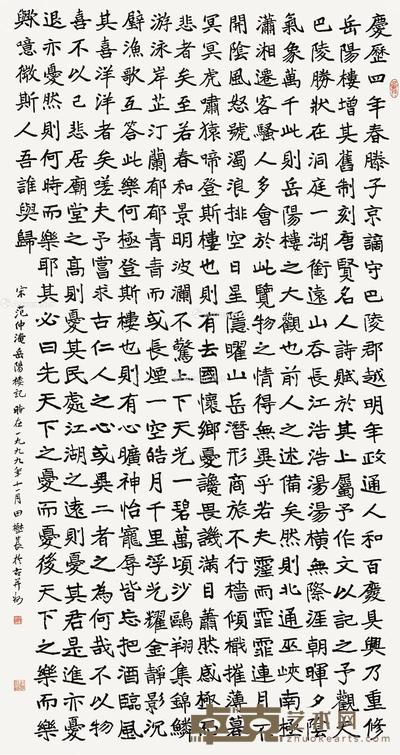 慶歷四年春滕子京謫守巴陵郡越明年政通人和百廢具興乃重修
岳陽樓增其舊制刻唐賢名人詩賦於其上屬予作文以記之予觀夫
巴陵勝狀在洞庭一湖銜遠山吞長江浩浩湯湯橫無際涯朝暉夕陰
氣象萬千此則岳陽樓之大觀也前人之述備矣然則北通巫峽南極
瀟湘遷客騷人多會於此覽物之情得無異乎若夫霪雨霏霏連月不
開陰風怒號濁浪排空日星隱曜山岳潛形商旅不行檣傾楫摧薄暮
冥冥虎嘯猿啼登斯樓也則有去國懷鄉憂讒畏譏滿目蕭然感極而
悲者矣至若春和景明波瀾不驚上下天光一碧萬頃沙鷗翔集錦鱗
游泳岸芷汀蘭郁郁青青而或長煙一空皓月千里浮光耀金靜影沉
璧漁歌互答此樂何極登斯樓也則有心曠神怡寵辱皆忘把酒臨風
其喜洋洋者矣嗟夫予嘗求古仁人之心或異二者之為何哉不以物
喜不以己悲居廟堂之高則憂其民處江湖之遠則憂其君是進亦憂
退亦憂然則何時而樂耶其必曰先天下之憂而憂後天下之樂而樂
歟噫微斯人吾誰與歸
宋 范仲淹 岳陽樓記 時在一九九九年十一月 田樹萇於古并州
卓克艺术网